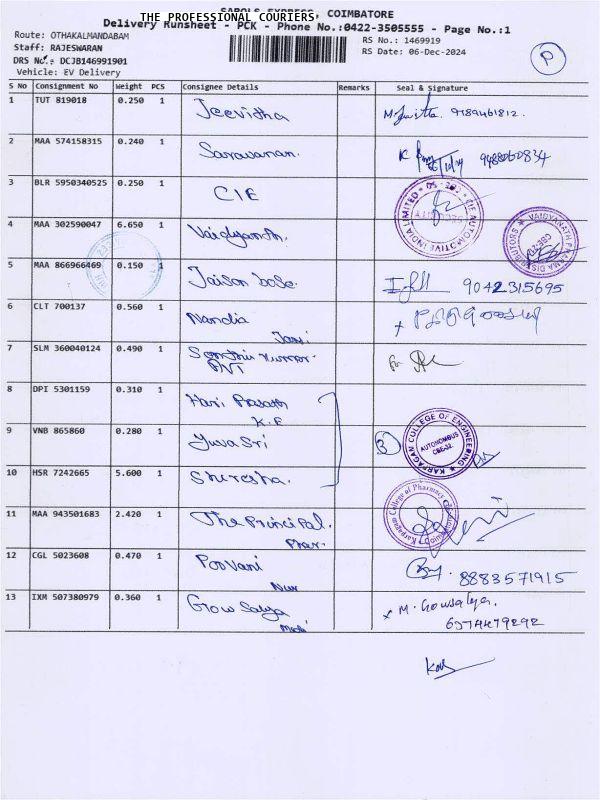 SABOLS EXPRESS, COIMBATORE
THE PROFESSIONAL COURIERS
Delivery Runsheet - PCK - Phone No.:0422-3505555 - Page No.:1
Route: OTHAKALMANDABAM
Staff: RAJESWARAN
DRS No.: DCJB146991901
Vehicle: EV Delivery
RS No.: 1469919
RS Date: 06-Dec-2024
P
S No Consignment No Weight PCS Consignee Details Remarks Seal & Signature
1 TUT 819018 0.250 1 Jeevitha 9189461812.
2 MAA 574158315 0.240 1 Saravanan. 9488060834
3 BLR 5950340525 0.250 1 CIE
CIE AUTOMOTIVE INDIA LIMITED
4 MAA 302590047 6.650 1 Vaidyanath.
VAIDYANATH PHARMA DISTRIBUTORS
5 MAA 866966469 0.150 1 Jaison bose. 9042315695
6 CLT 700137 0.560 1 Nandia
7 SLM 360040124 0.490 1 Santhi Kumar.
PVT
8 DPI 5301159 0.310 1 Hari Prasath
K.E
9 VNB 865860 0.280 1 Yuva Sri
3
KARPAGAM COLLEGE OF ENGINEERING
AUTONOMOUS
CBE-32
10 HSR 7242665 5.600 1 Shiresha.
11 MAA 943501683 2.420 1 The Principal.
Phar.
Karpagam College of Pharmacy
12 CGL 5023608 0.470 1 Poovani 8883571915
Nur
13 IXM 507380979 0.360 1 Gow Salya M. Gowsalya.
6374479292